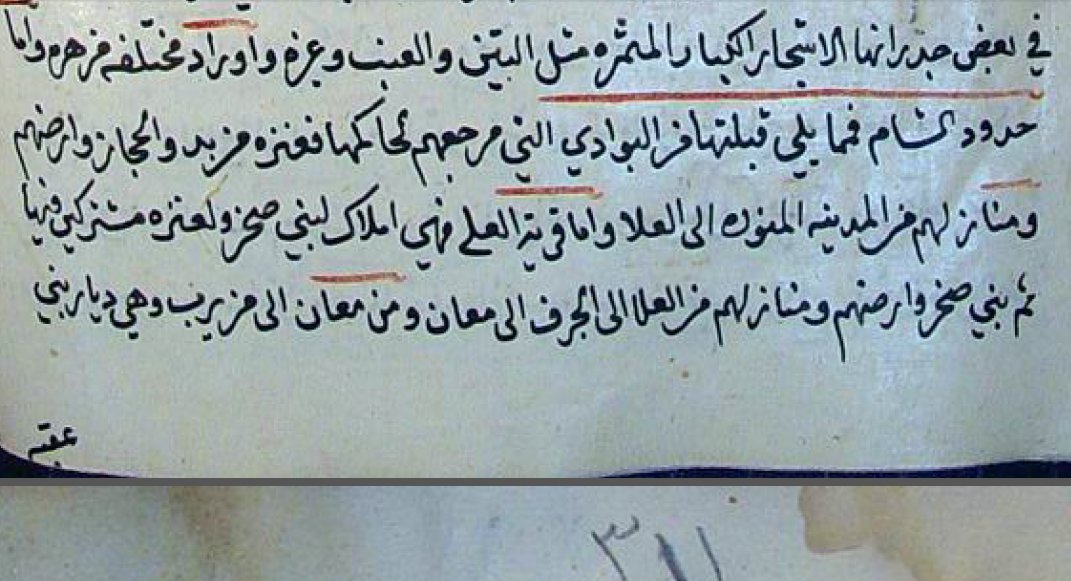 في بعض جدرانها الاشجار الكبار المثمره مثل التين والعنب وغيره واوراد مختلفه مزهره واما
حدود الشام فما يلي قبلتها فمن البوادي التي مرجعهم لحاكمها فعنزه مزيد والحجاز وارضهم
ومنازلهم من المدينه المنوره الى العلا واما قرية العلى فهي املاك لبني صخر ولعنزه مشتركين فيها
ثم بني صخر وارضهم ومنازلهم من العلا الى الجرف الى معان ومن معان الى مزيريب وهي ديار بني
عقبه
٣١